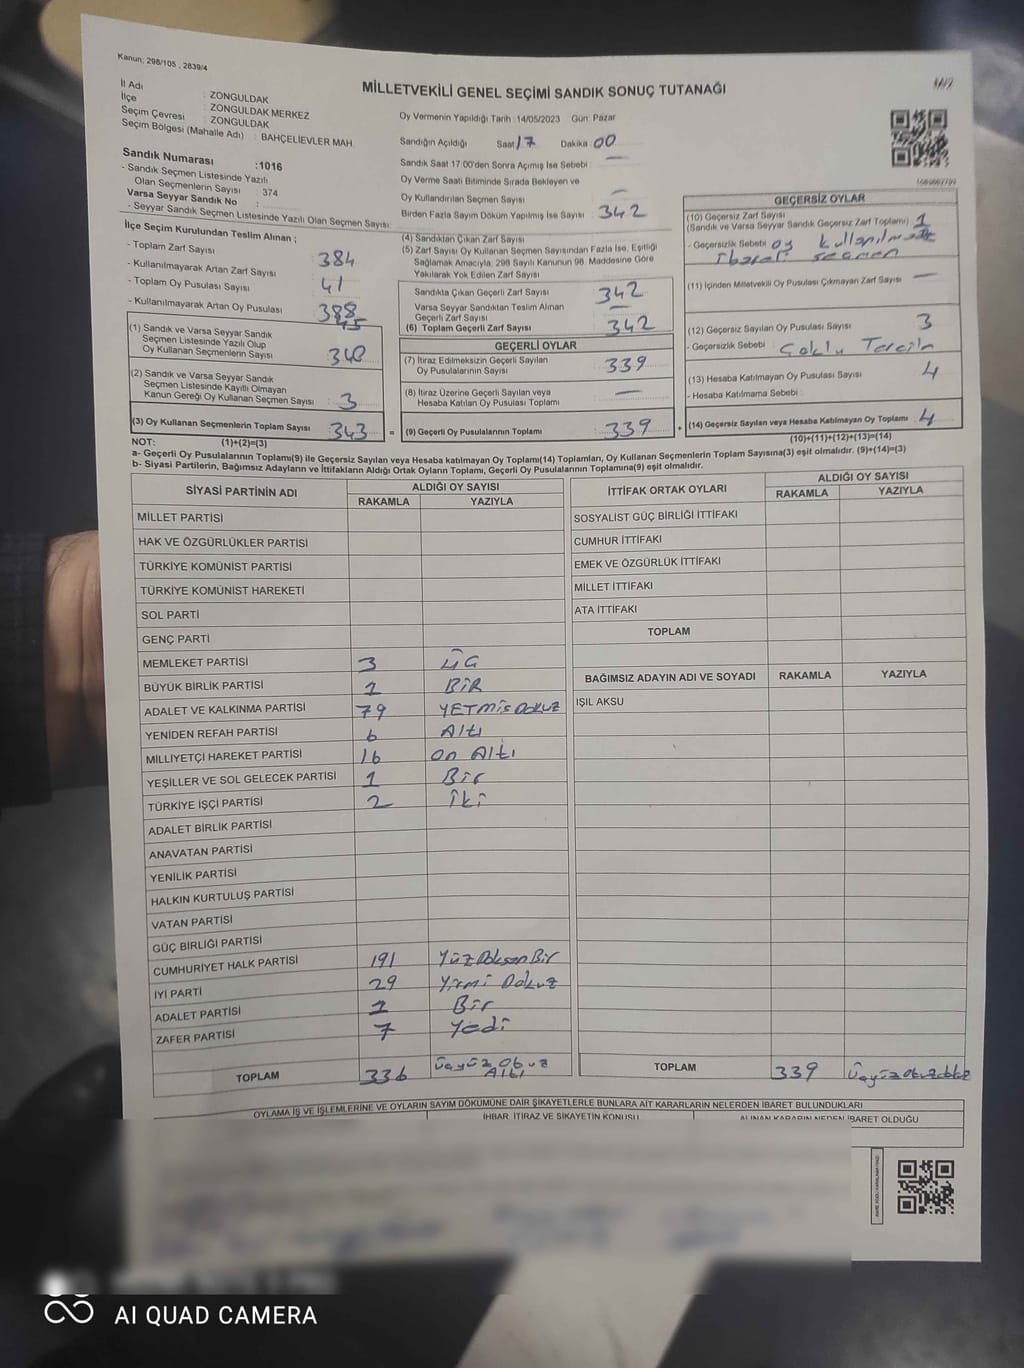 Kanun: 298/105 , 2839/4
MİLLETVEKİLİ GENEL SEÇİMİ SANDIK SONUÇ TUTANAĞI
İl Adı : ZONGULDAK
İlçe : ZONGULDAK MERKEZ
Seçim Çevresi : ZONGULDAK
Seçim Bölgesi (Mahalle Adı) : BAHÇELİEVLER MAH.
Sandık Numarası :1016
- Sandık Seçmen Listesinde Yazılı
Olan Seçmenlerin Sayısı : 374
Varsa Seyyar Sandık No :
- Seyyar Sandık Seçmen Listesinde Yazılı Olan Seçmen Sayısı:
Oy Vermenin Yapıldığı Tarih :14/05/2023 Gün: Pazar
Sandığın Açıldığı Saat 17 Dakika 00
Sandık Saat 17.00'den Sonra Açılmış İse Sebebi : —
Oy Verme Saati Bitiminde Sırada Bekleyen ve
Oy Kullandırılan Seçmen Sayısı —
Birden Fazla Sayım Döküm Yapılmış İse Sayısı 342
İlçe Seçim Kurulundan Teslim Alınan ;
- Toplam Zarf Sayısı 384
- Kullanılmayarak Artan Zarf Sayısı 41
- Toplam Oy Pusulası Sayısı 388
- Kullanılmayarak Artan Oy Pusulası 45
(1) Sandık ve Varsa Seyyar Sandık
Seçmen Listesinde Yazılı Olup
Oy Kullanan Seçmenlerin Sayısı 340
(2) Sandık ve Varsa Seyyar Sandık
Seçmen Listesinde Kayıtlı Olmayan
Kanun Gereği Oy Kullanan Seçmen Sayısı 3
(3) Oy Kullanan Seçmenlerin Toplam Sayısı 343
(4) Sandıktan Çıkan Zarf Sayısı
(5) Zarf Sayısı Oy Kullanan Seçmen Sayısından Fazla İse, Eşitliği
Sağlamak Amacıyla, 298 Sayılı Kanunun 98. Maddesine Göre
Yakılarak Yok Edilen Zarf Sayısı
Sandıkta Çıkan Geçerli Zarf Sayısı 342
Varsa Seyyar Sandıktan Teslim Alınan
Geçerli Zarf Sayısı —
(6) Toplam Geçerli Zarf Sayısı 342
GEÇERLİ OYLAR
(7) İtiraz Edilmeksizin Geçerli Sayılan
Oy Pusulalarının Sayısı 339
(8) İtiraz Üzerine Geçerli Sayılan veya
Hesaba Katılan Oy Pusulası Toplamı —
= (9) Geçerli Oy Pusulalarının Toplamı 339
GEÇERSİZ OYLAR
(10) Geçersiz Zarf Sayısı
(Sandık ve Varsa Seyyar Sandık Geçersiz Zarf Toplamı) 1
- Geçersizlik Sebebi oy kullanılmadı
seçmen
(11) İçinden Milletvekili Oy Pusulası Çıkmayan Zarf Sayısı —
(12) Geçersiz Sayılan Oy Pusulası Sayısı 3
- Geçersizlik Sebebi : Çoklu Tercih
(13) Hesaba Katılmayan Oy Pusulası Sayısı 4
- Hesaba Katılmama Sebebi :
+ (14) Geçersiz Sayılan veya Hesaba Katılmayan Oy Toplamı 4
NOT: (1)+(2)=(3)
(10)+(11)+(12)+(13)=(14)
a- Geçerli Oy Pusulalarının Toplamı(9) ile Geçersiz Sayılan veya Hesaba Katılmayan Oy Toplamı(14) Toplamları, Oy Kullanan Seçmenlerin Toplam Sayısına(3) eşit olmalıdır. (9)+(14)=(3)
b- Siyasi Partilerin, Bağımsız Adayların ve İttifakların Aldığı Ortak Oyların Toplamı, Geçerli Oy Pusulalarının Toplamına(9) eşit olmalıdır.
SİYASİ PARTİNİN ADI ALDIĞI OY SAYISI
RAKAMLA YAZIYLA
MİLLET PARTİSİ
HAK VE ÖZGÜRLÜKLER PARTİSİ
TÜRKİYE KOMÜNİST PARTİSİ
TÜRKİYE KOMÜNİST HAREKETİ
SOL PARTİ
GENÇ PARTİ
MEMLEKET PARTİSİ 3 ÜÇ
BÜYÜK BİRLİK PARTİSİ 1 BİR
ADALET VE KALKINMA PARTİSİ 79 YETMİŞ DOKUZ
YENİDEN REFAH PARTİSİ 6 Altı
MİLLİYETÇİ HAREKET PARTİSİ 16 on Altı
YEŞİLLER VE SOL GELECEK PARTİSİ 1 Bir
TÜRKİYE İŞÇİ PARTİSİ 2 İki
ADALET BİRLİK PARTİSİ
ANAVATAN PARTİSİ
YENİLİK PARTİSİ
HALKIN KURTULUŞ PARTİSİ
VATAN PARTİSİ
GÜÇ BİRLİĞİ PARTİSİ
CUMHURİYET HALK PARTİSİ 191 Yüz Doksan Bir
İYİ PARTİ 29 Yirmi Dokuz
ADALET PARTİSİ 1 Bir
ZAFER PARTİSİ 7 Yedi
TOPLAM 336 Üçyüz Otuz Altı
İTTİFAK ORTAK OYLARI ALDIĞI OY SAYISI
RAKAMLA YAZIYLA
SOSYALİST GÜÇ BİRLİĞİ İTTİFAKI
CUMHUR İTTİFAKI
EMEK VE ÖZGÜRLÜK İTTİFAKI
MİLLET İTTİFAKI
ATA İTTİFAKI
TOPLAM
BAĞIMSIZ ADAYIN ADI VE SOYADI RAKAMLA YAZIYLA
IŞIL AKSU
TOPLAM 339 Üçyüz Otuzdokuz
OYLAMA İŞ VE İŞLEMLERİNE VE OYLARIN SAYIM DÖKÜMÜNE DAİR ŞİKAYETLERLE BUNLARA AİT KARARLARIN NELERDEN İBARET BULUNDUKLARI
İHBAR, İTİRAZ VE ŞİKAYETİN KONUSU ALINAN KARARIN NEDEN İBARET OLDUĞU
AI QUAD CAMERA